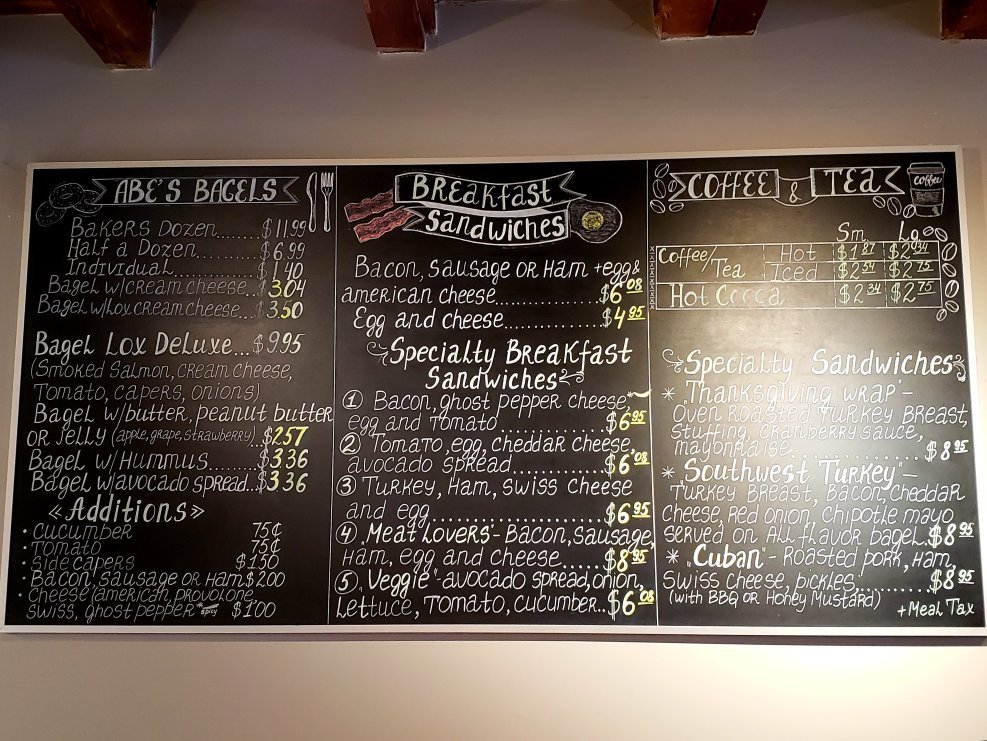 ABE'S BAGELS
BAKERS DOZEN.......$11.99
Half a Dozen.......$6.99
Individual..........$1.40
Bagel w/cream cheese..$3.04
Bagel w/Lox cream cheese...$3.50
Bagel Lox Deluxe...$9.95
(Smoked Salmon, cream cheese,
Tomato, capers, onions)
Bagel w/butter, peanut butter
or Jelly (apple, grape, strawberry)..$2.57
Bagel w/Hummus.......$3.36
Bagel w/avocado spread...$3.36
«Additions»
· cucumber 75¢
· Tomato 75¢
· side capers $1.50
· Bacon, sausage or Ham $2.00
· cheese (american, provolone,
swiss, ghost pepper *spicy $1.00
Breakfast
Sandwiches
Bacon, sausage or Ham +egg &
american cheese............$6.08
Egg and cheese..............$4.95
Specialty Breakfast
Sandwiches
① Bacon, ghost pepper cheese,
egg and Tomato..............$6.95
② Tomato, egg, cheddar cheese,
avocado spread.............$6.08
③ Turkey, Ham, Swiss Cheese
and egg.......................$6.95
④ „Meat Lovers- Bacon, Sausage,
Ham, egg and cheese.....$8.95
⑤ „Veggie"-avocado spread, onion,
Lettuce, Tomato, cucumber..$6.08
COFFEE & TEA
coffee
Sm Lg
Coffee/Tea Hot $1.87 $2.34
Iced $2.54 $2.75
Hot Cocoa $2.34 $2.75
Specialty Sandwiches
* „Thanksgiving Wrap"-
Oven Roasted Turkey Breast,
Stuffing, Cranberry Sauce,
mayonnaise..............$8.95
* „Southwest Turkey"-
Turkey Breast, Bacon, Cheddar
Cheese, Red Onion, Chipotle mayo
served on All flavor bagel.$8.95
* „Cuban"- Roasted pork, Ham,
Swiss cheese, pickles........$8.95
(with BBQ or Honey Mustard)
+Meal Tax